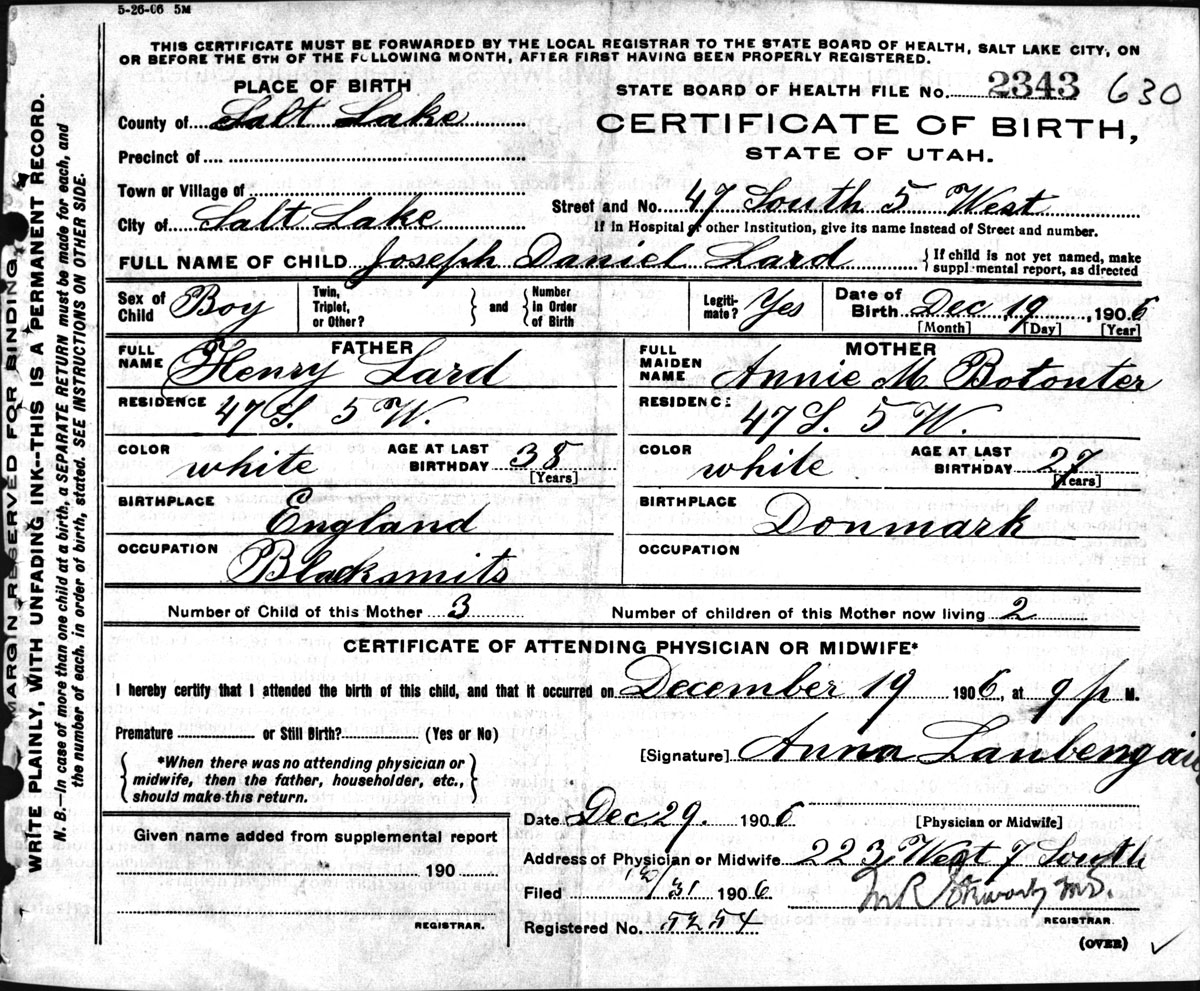 5-26-06 5M
THIS CERTIFICATE MUST BE FORWARDED BY THE LOCAL REGISTRAR TO THE STATE BOARD OF HEALTH, SALT LAKE CITY, ON
OR BEFORE THE 5TH OF THE FOLLOWING MONTH, AFTER FIRST HAVING BEEN PROPERLY REGISTERED.
PLACE OF BIRTH
STATE BOARD OF HEALTH FILE No. 2343 630
County of Salt Lake
CERTIFICATE OF BIRTH,
STATE OF UTAH.
Precinct of
Town or Village of
Street and No. 47 South 5 West
City of Salt Lake
If in Hospital or other Institution, give its name instead of Street and number.
FULL NAME OF CHILD Joseph Daniel Lard
If child is not yet named, make
supplemental report, as directed
Sex of Child Boy
Twin, Triplet, or Other?
and
Number in Order of Birth
Legitimate? Yes
Date of Birth Dec 19, 1906
[Month] [Day] [Year]
FATHER
FULL NAME Henry Lard
RESIDENCE 47 S. 5 W.
COLOR white AGE AT LAST BIRTHDAY 38
[Years]
BIRTHPLACE England
OCCUPATION Blacksmits
MOTHER
FULL MAIDEN NAME Annie M Botonter
RESIDENCE 47 S. 5 W.
COLOR white AGE AT LAST BIRTHDAY 27
[Years]
BIRTHPLACE Donmark
OCCUPATION
Number of Child of this Mother 3 Number of children of this Mother now living 2
CERTIFICATE OF ATTENDING PHYSICIAN OR MIDWIFE*
I hereby certify that I attended the birth of this child, and that it occurred on December 19 1906, at 9 p M.
Premature or Still Birth? (Yes or No)
[Signature] Anna Laubengai
*When there was no attending physician or
midwife, then the father, householder, etc.,
should make this return.
Date Dec 29. 1906
[Physician or Midwife]
Given name added from supplemental report
190
REGISTRAR.
Address of Physician or Midwife 223 West 7 South
Filed 12/31 1906
M.D.
REGISTRAR.
Registered No. 5254
(OVER)
MARGIN RESERVED FOR BINDING
WRITE PLAINLY, WITH UNFADING INK--THIS IS A PERMANENT RECORD.
N. B.—In case of more than one child at a birth, a SEPARATE RETURN must be made for each, and
the number of each, in order of birth, stated. SEE INSTRUCTIONS ON OTHER SIDE.